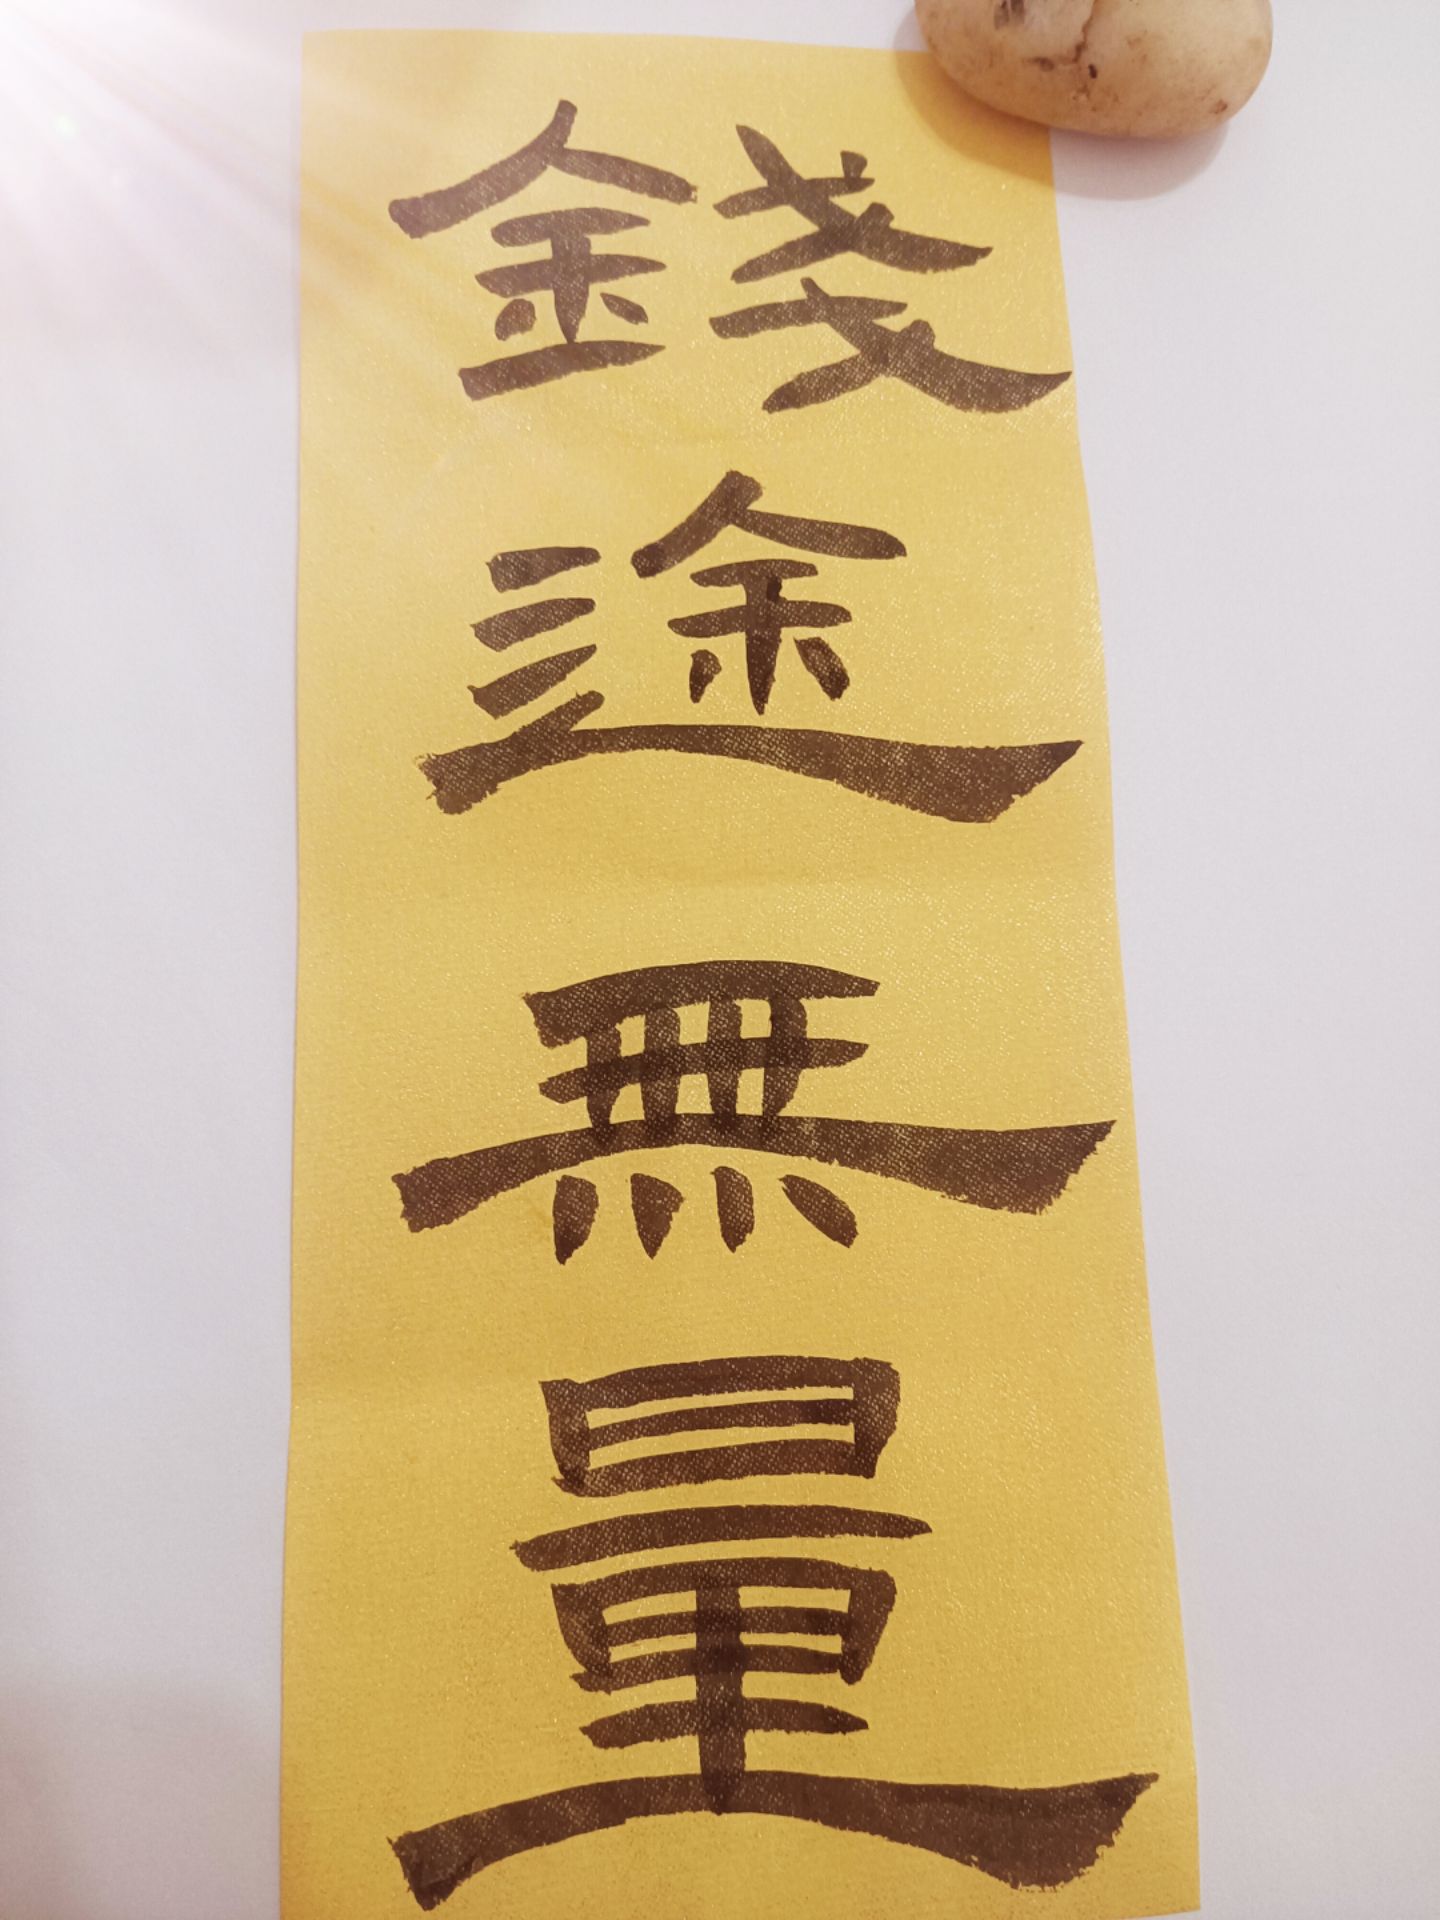 錢途無量